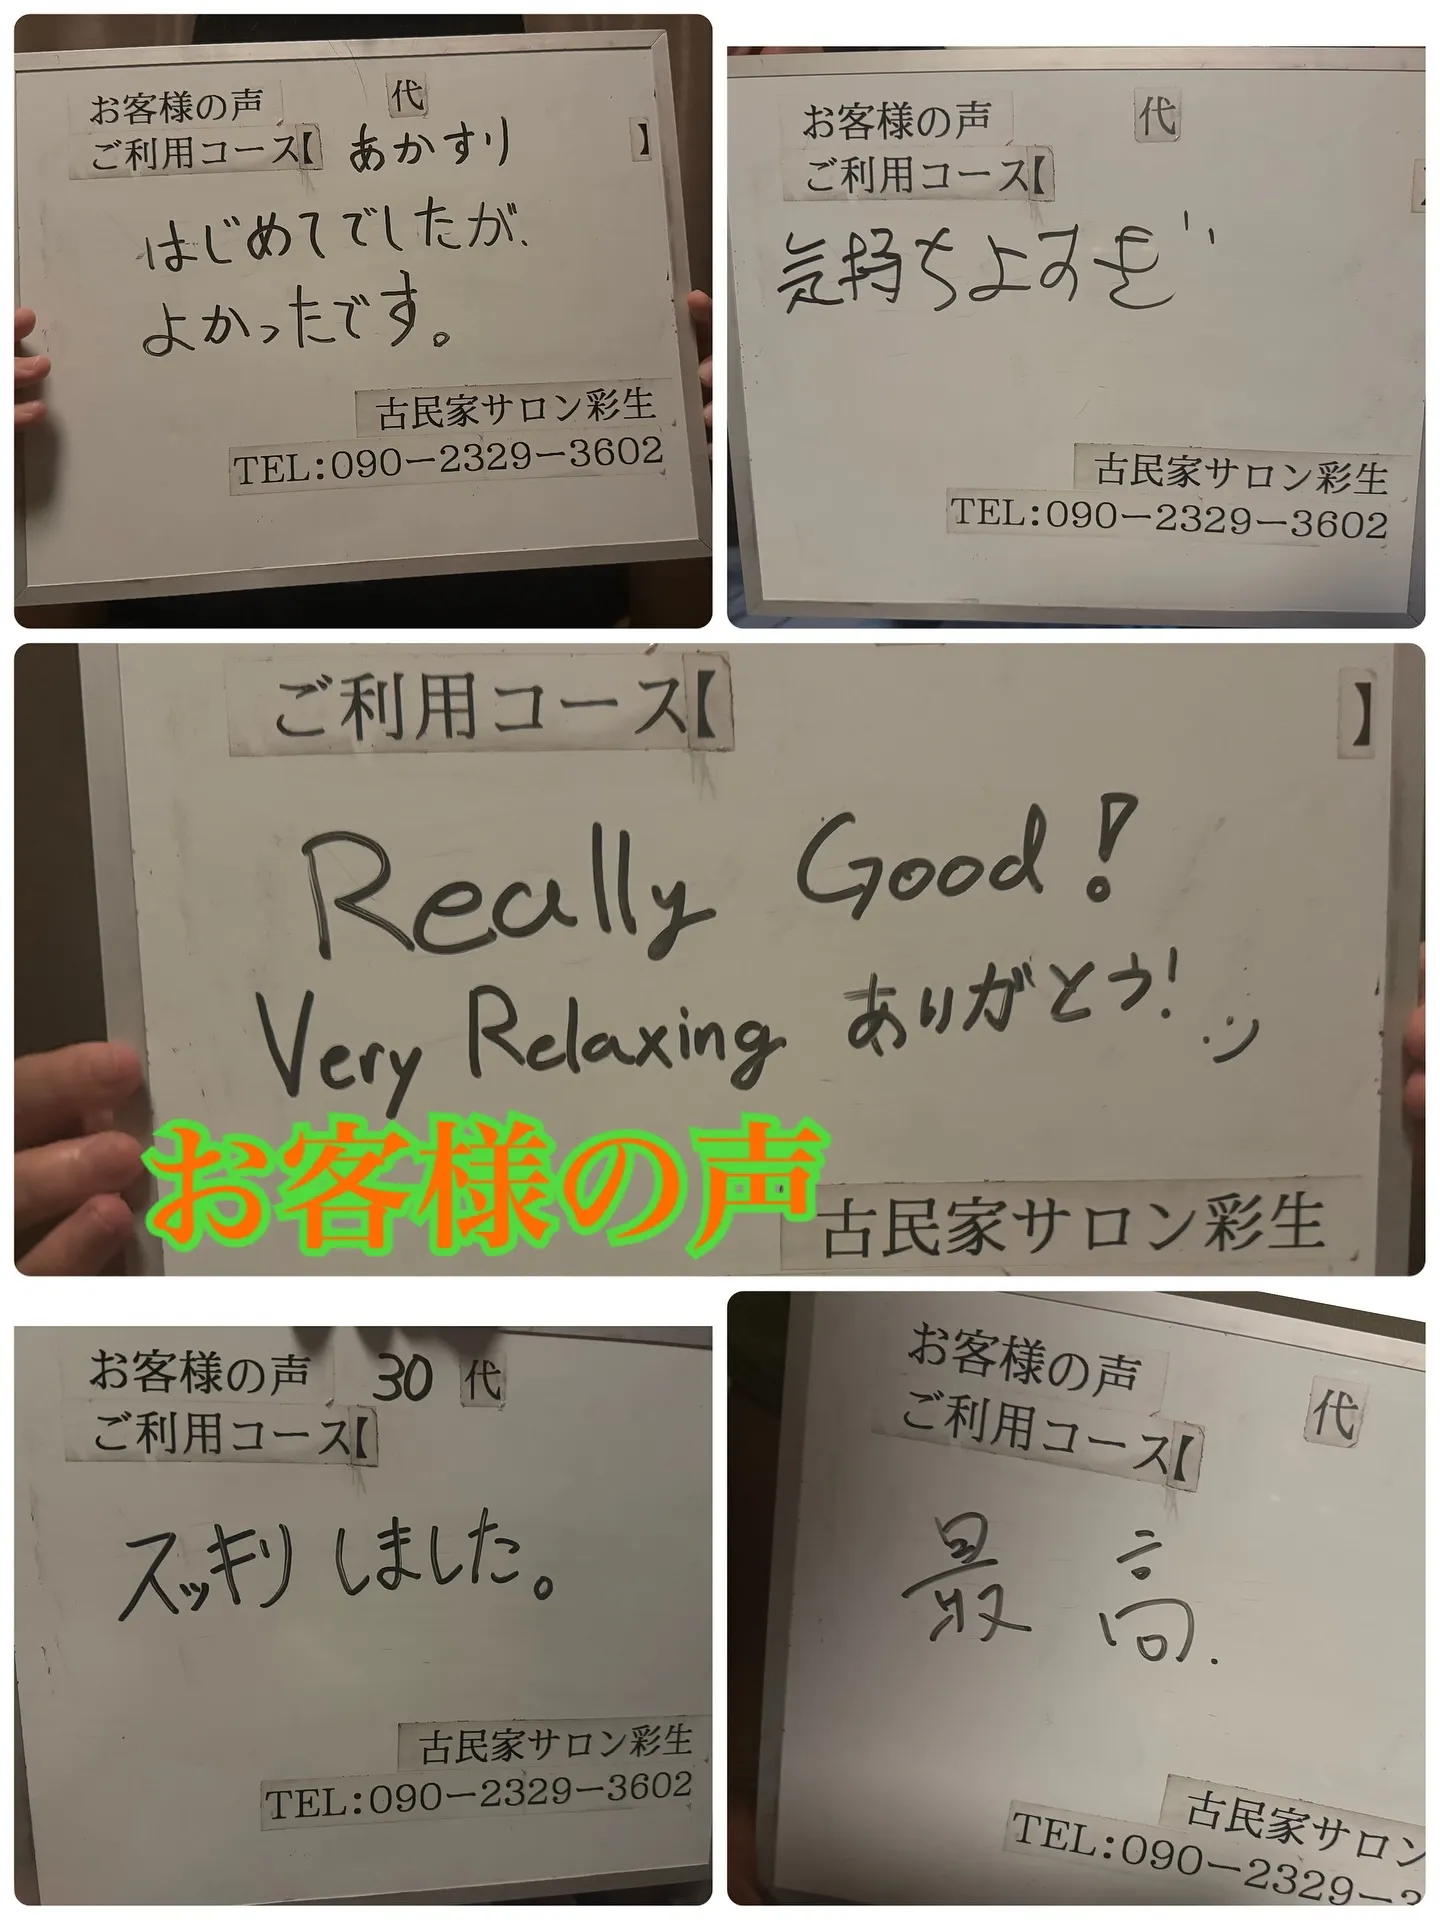 お客様の声 代
ご利用コース【 あかすり 】
はじめてでしたが、
よかったです。
古民家サロン彩生
TEL:090ー2329ー3602
お客様の声 代
ご利用コース【
気持ちよすぎ
古民家サロン彩生
TEL:090ー2329ー3602
ご利用コース【 】
Really Good!
Very Relaxing ありがとう! :)
お客様の声
古民家サロン彩生
お客様の声 30 代
ご利用コース【
スッキリしました。
古民家サロン彩生
TEL:090ー2329ー3602
お客様の声 代
ご利用コース【
最高.
古民家サロン
TEL:090ー2329ー3